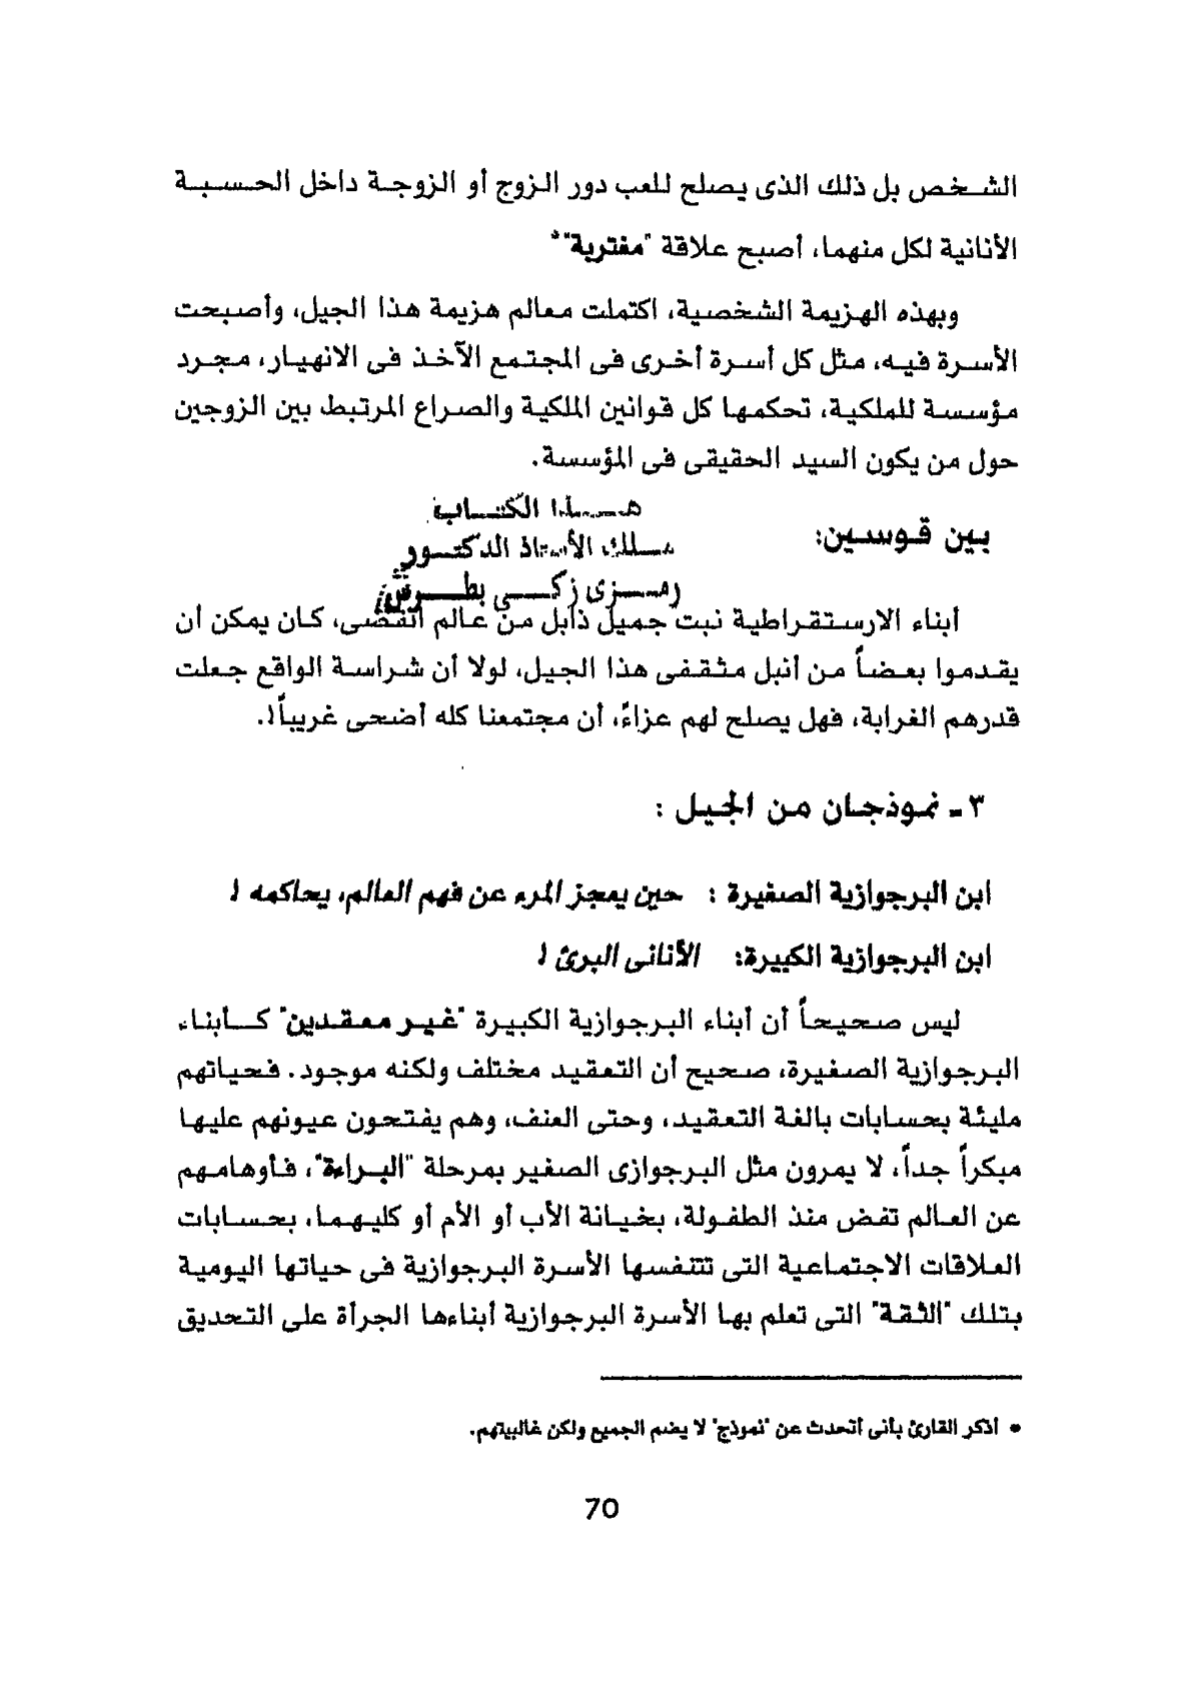 الشخص بل ذلك الذى يصلح للعب دور الزوج أو الزوجة داخل الحسبة
الأنانية لكل منهما، أصبح علاقة "مغتربة"*
وبهذه الهزيمة الشخصية، اكتملت معالم هزيمة هذا الجيل، وأصبحت
الأسرة فيه، مثل كل أسرة أخرى فى المجتمع الآخذ فى الانهيار، مجرد
مؤسسة للملكية، تحكمها كل قوانين الملكية والصراع المرتبط بين الزوجين
حول من يكون السيد الحقيقى فى المؤسسة.
هذا الكتاب
ملك الأستاذ الدكتور
رمزى زكى بطرس
بين قوسين:
أبناء الارستقراطية نبت جميل ذابل من عالم انقضى، كان يمكن أن
يقدموا بعضاً من أنبل مثقفى هذا الجيل، لولا أن شراسة الواقع جعلت
قدرهم الغرابة، فهل يصلح لهم عزاءً، أن مجتمعنا كله أضحى غريباً!.
٣ - نموذجان من الجيل :
ابن البرجوازية الصغيرة : حين يعجز المرء عن فهم العالم، يحاكمه !
ابن البرجوازية الكبيرة: الأنانى البرئ !
ليس صحيحاً أن أبناء البرجوازية الكبيرة "غير معقدين" كأبناء
البرجوازية الصغيرة، صحيح أن التعقيد مختلف ولكنه موجود. فحياتهم
مليئة بحسابات بالغة التعقيد، وحتى العنف، وهم يفتحون عيونهم عليها
مبكراً جداً، لا يمرون مثل البرجوازى الصغير بمرحلة "البراءة"، فأوهامهم
عن العالم تفض منذ الطفولة، بخيانة الأب أو الأم أو كليهما، بحسابات
العلاقات الاجتماعية التى تتنفسها الأسرة البرجوازية فى حياتها اليومية
بتلك "الثقة" التى تعلم بها الأسرة البرجوازية أبناءها الجرأة على التحديق
* أذكر القارئ بأنى أتحدث عن "نموذج" لا يضم الجميع ولكن غالبيتهم.
70